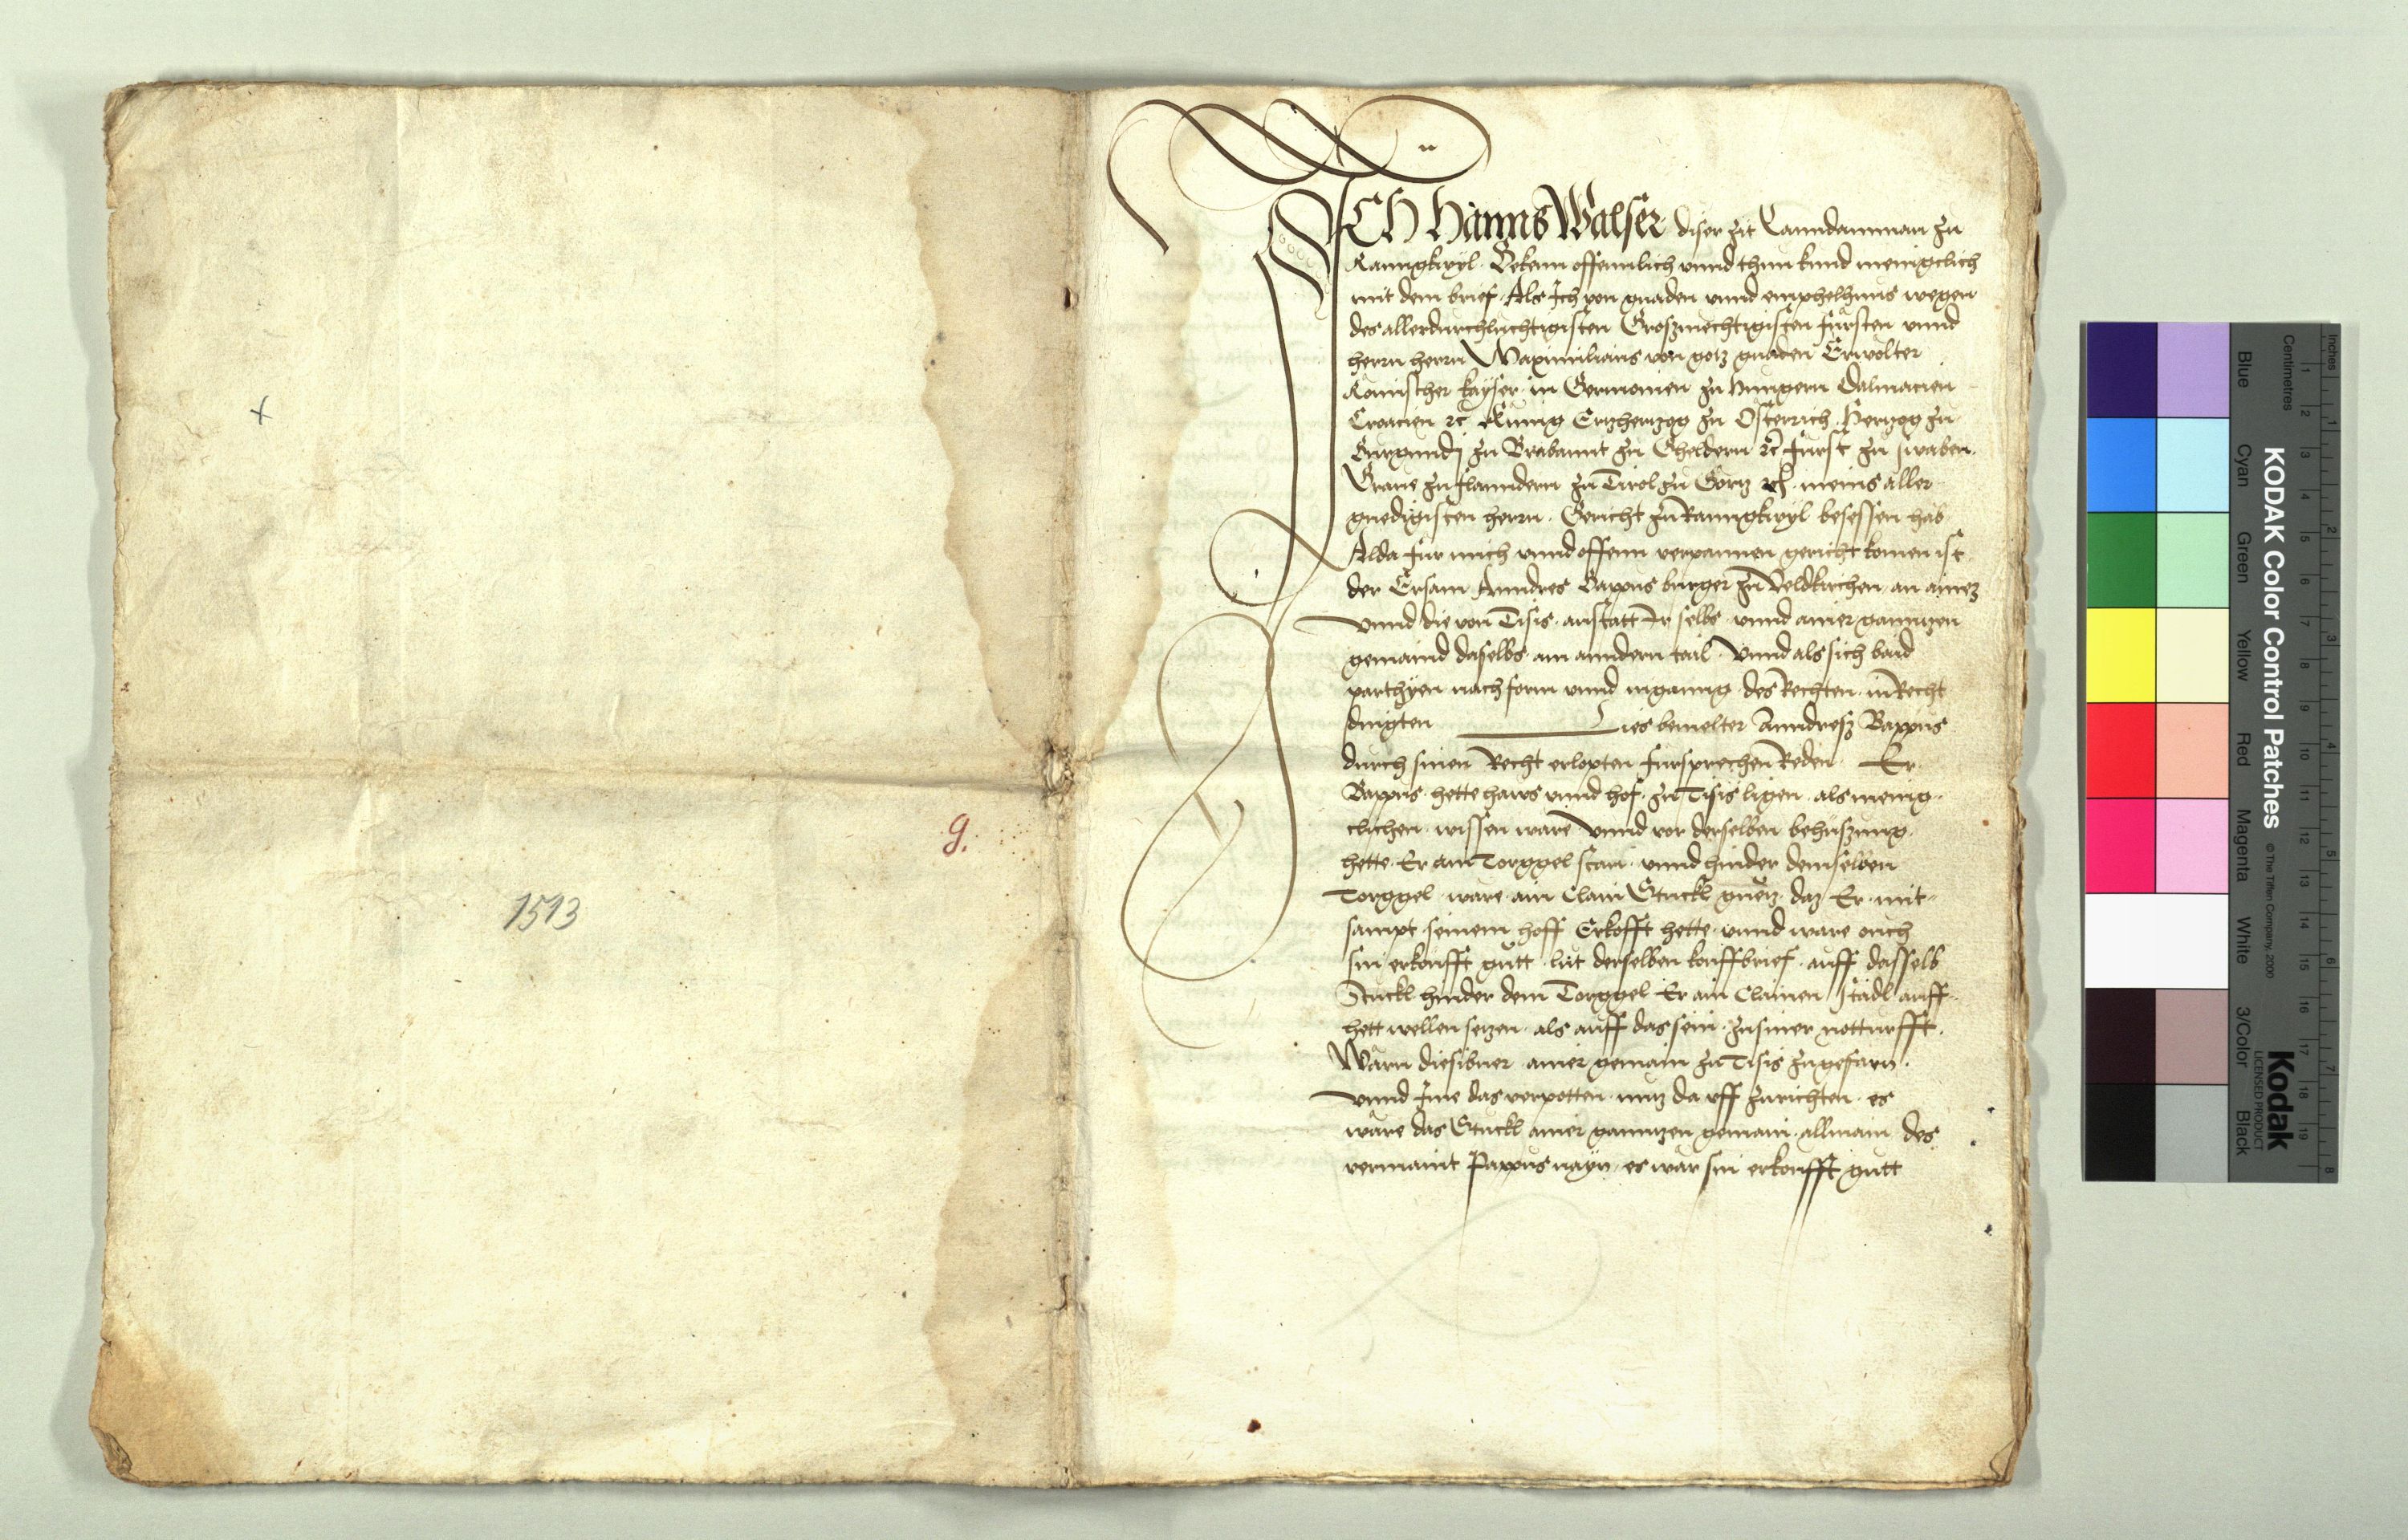 +
g.
1513
ICH Hanns Walser diser zit Lanndamman zu
Ranngkwyl. Bekenn offennlich vnnd thun kund menigclich
mit dem brief. Als Ich von gnaden vnnd emphelhnus wegen
des allerdurchluchtigisten Groszmechtigisten fursten vnnd
herrn herrn Maximilians von gotz gnaden Erwölter
Römischer kayser. in Germanien zu Hungern Dalmacien
Croacien ꝛc Kunig Ertzhertzog zu Osterrich. Hertzog zu
Burgundj zu Brabannt zu Gheldern ꝛc fürst zu swaben.
Graue zu flanndern zu Tirol zu Görtz ꝛc. meins aller
gnedigisten herrn. Gericht zu Ranngkwyl besessen hab
Alda fur mich vnnd offenn verpannen gericht komen ist
der Ersam Anndres Bappus burger zu Veldkirchen. an ainez
vnnd die von Tisis. anstatt Ir selbs. vnnd ainer ganntzen
gemaind daselbs. am anndern tail. Vnnd als sich baid
parthyen nach form vnnd inganng des Rechten. in Recht
dingten Lies bemelter Anndresz Bappus
durch sinen Recht erlopten fürsprechen Reden. Er
Bappus. hette haws vnnd hof. zu Tisis ligen. als menig
clichen. wissen ware Vnnd vor derselben behuszung.
hette. Er ain Torggel stan. vnnd hinder demselben
Torggel. ware. ain Clain Stuckl guetz. daz Er. mit
sampt seinem hoff Erkofft hette. vnnd ware ouch
sin erkoufft gutt. lut derselben kouffbrief. auff dasselb
Stuckl hinder dem Torggel Er ain Clainen Stadl auff
hett wellen setzen. als auff das sein. zu siner notturfft.
Wärn die sibner ainer gemain zu Tisis zugefarn.
vnnd Ime das verpotten. nutz da vff zurichten. es
wäre das Stuckl ainer ganntzen gemain. allmain des
vermaint Pappus nayn. es wär sin erkoufft gutt
Inches
Centimetres
Blue
Cyan
Green
Yellow
Red
Magenta
White
3/Color
Black
KODAK Color Control Patches
© The Tiffen Company, 2000
Kodak
LICENSED PRODUCT